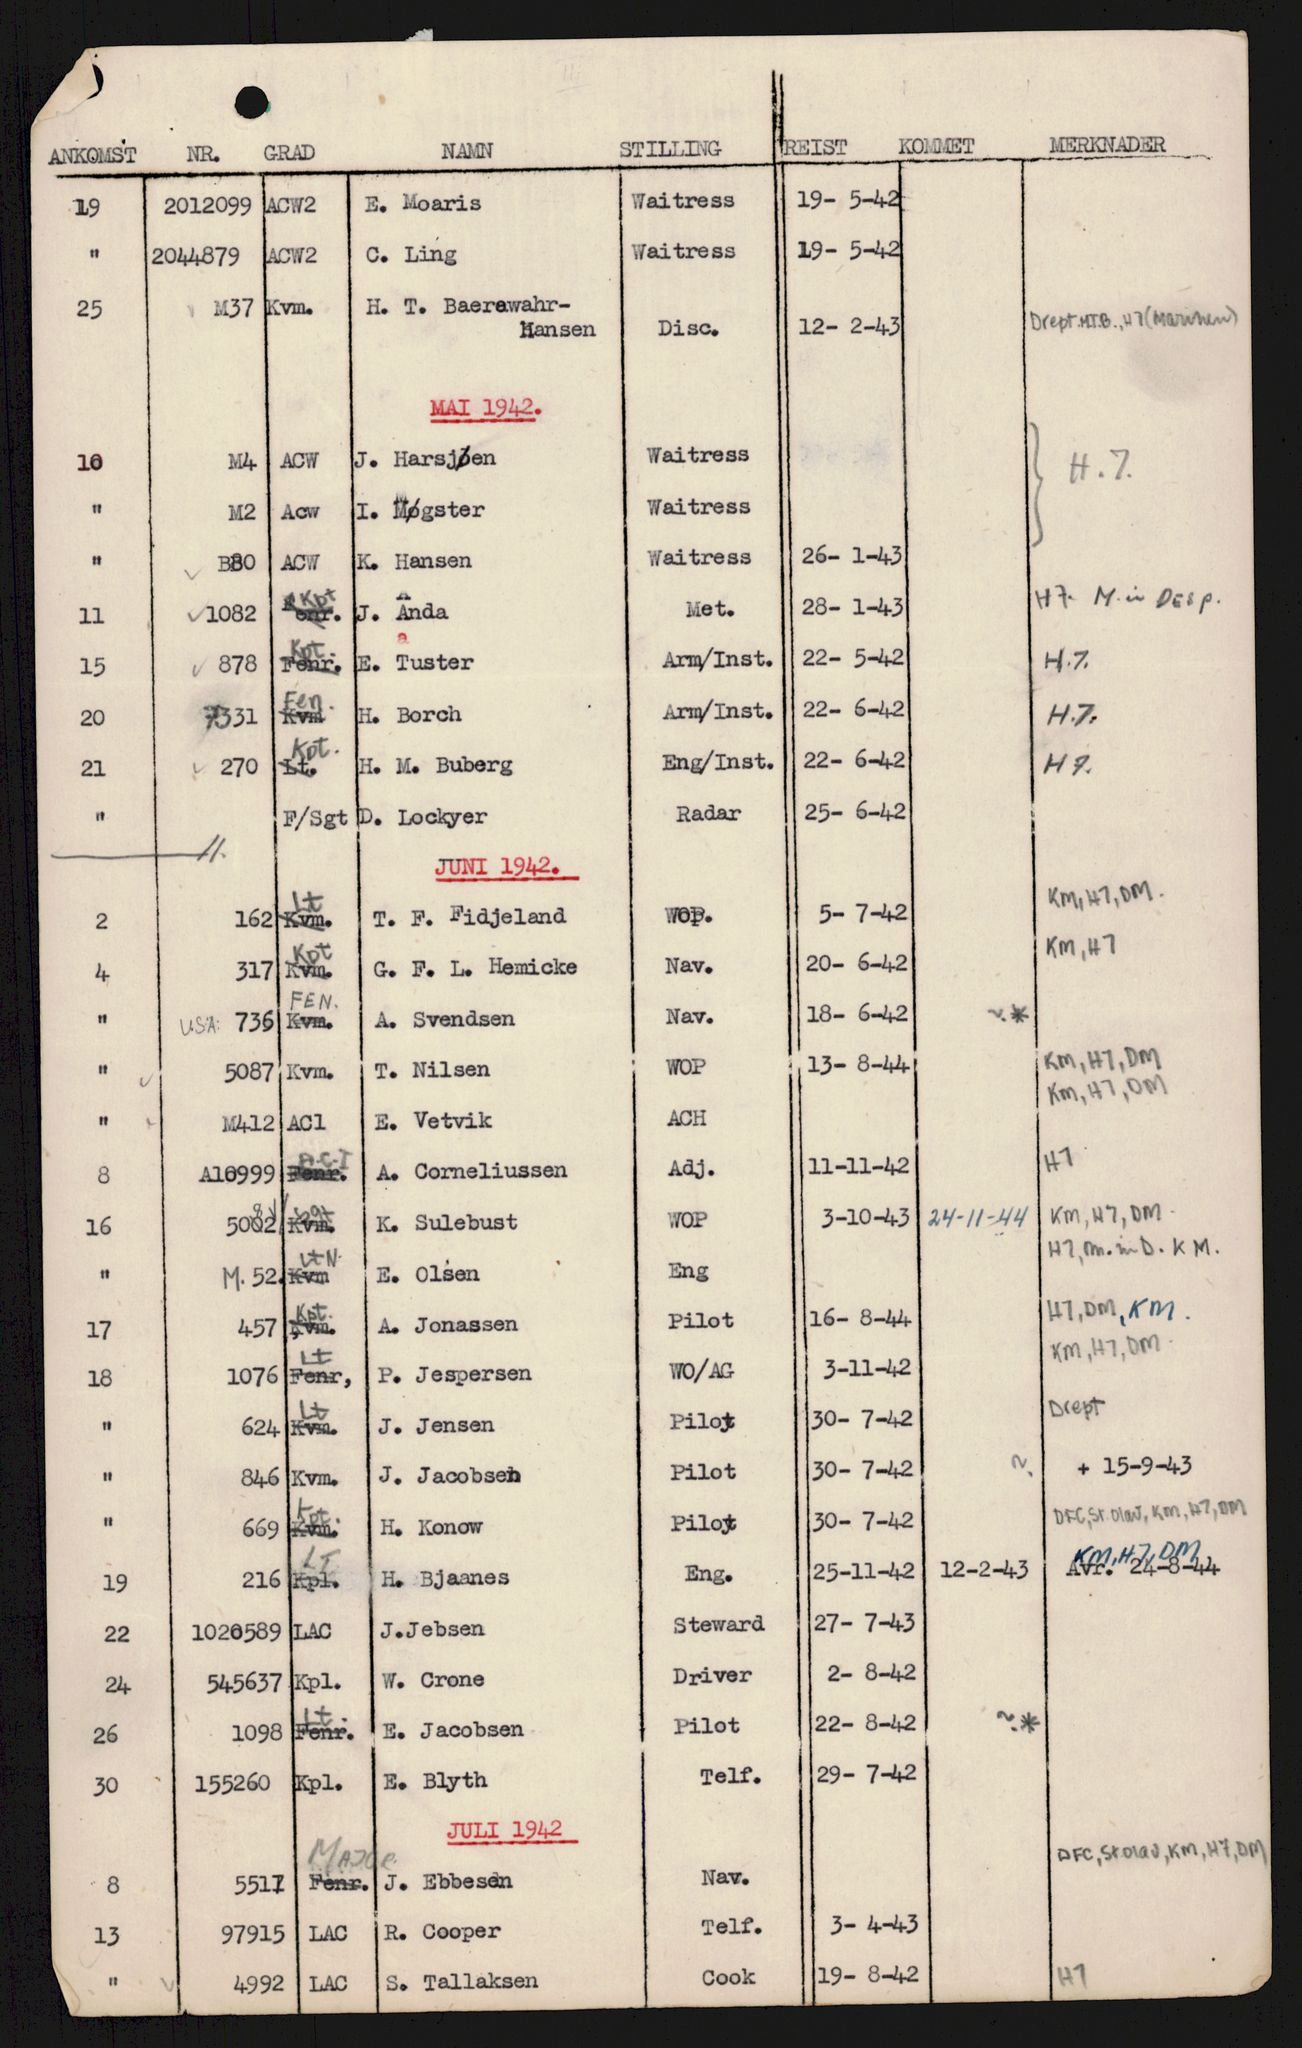 ANKOMST NR. GRAD NAMN STILLING REIST KOMMET MERKNADER
19 2012099 ACW2 E. Moaris Waitress 19- 5-42
" 2044879 ACW2 C. Ling Waitress 19- 5-42
25 M37 Kvm. H. T. Baerewahr-
Hansen Disc. 12- 2-43 Drept.MTB., H7 (Marinen)
MAI 1942.
10 M4 ACW J. Harsjøen Waitress
H.7.
" M2 Acw I. Møgster Waitress
" B80 ACW K. Hansen Waitress 26- 1-43
11 1082 Kpt Fenr. J. Anda Met. 28- 1-43 H7. M. in Desp.
15 878 Kpt. Fenr. E. Tuster a Arm/Inst. 22- 5-42 H.7.
20 7331 Fen. Kvm H. Borch Arm/Inst. 22- 6-42 H.7.
21 270 Kpt. Lt. H. M. Buberg Eng/Inst. 22- 6-42 H7.
" F/Sgt D. Lockyer Radar 25- 6-42
11.
JUNI 1942.
2 162 Lt Kvm. T. F. Fidjeland WOP. 5- 7-42 KM, H7, DM.
4 317 Kpt Kvm. G. F. L. Hemicke Nav. 20- 6-42 KM, H7
" USA: 736 FEN. Kvm. A. Svendsen Nav. 18- 6-42 ~.*
" 5087 Kvm. T. Nilsen WOP 13- 8-44 KM, H7, DM
" M412 AC1 E. Vetvik ACH KM, H7, DM
8 A10999 Fenr. A. Corneliussen Adj. 11-11-42 H7
16 5002 Kvm. K. Sulebust WOP 3-10-43 24-11-44 KM, H7, DM.
" M. 52. Lt N. Kvm E. Olsen Eng H7, m. in D. KM.
17 457 Kpt. Kvm. A. Jonassen Pilot 16- 8-44 H7, DM, KM.
18 1076 Lt Fenr, P. Jespersen WO/AG 3-11-42 KM, H7, DM.
" 624 Lt Kvm. J. Jensen Pilot 30- 7-42 Drept
" 846 Kvm. J. Jacobsen Pilot 30- 7-42 ~. + 15-9-43
" 669 Kpt. Kvm. H. Konow Pilot 30- 7-42 DFC, St.Olav, KM, H7, DM
KM, H7, DM
19 216 LT Kpl. H. Bjaanes Eng. 25-11-42 12-2-43 Avr. 24-8-44
22 1020589 LAC J.Jebsen Steward 27- 7-43
24 545637 Kpl. W. Crone Driver 2- 8-42
26 1098 Lt. Fenr. E. Jacobsen Pilot 22- 8-42 ~.*
30 155260 Kpl. E. Blyth Telf. 29- 7-42
JULI 1942
8 5511 MAJOR. Fenr. J. Ebbesen Nav. DFC, St olav, KM, H7, DM
13 97915 LAC R. Cooper Telf. 3- 4-43
" 4992 LAC S. Tallaksen Cook 19- 8-42 H7